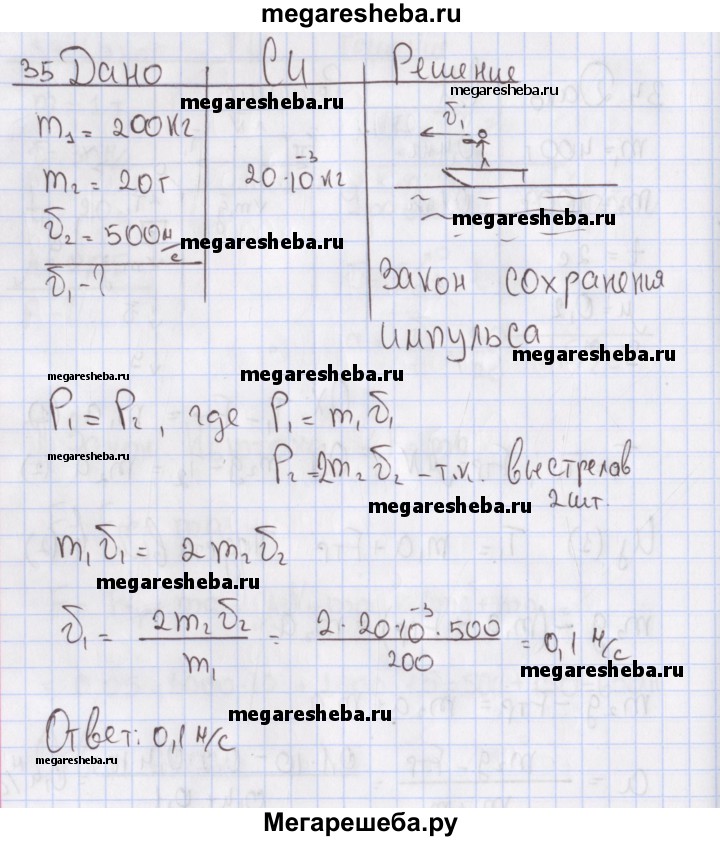 megaresheba.ru
35 Дано СИ Решение
megaresheba.ru
megaresheba.ru
m₁ = 200 кг v̄₁
m₂ = 20 г 20·10⁻³ кг
megaresheba.ru
v̄₂ = 500 м/с
megaresheba.ru
v̄₁ - ?
Закон сохранения
импульса
megaresheba.ru
megaresheba.ru
megaresheba.ru
P₁ = P₂, где P₁ = m₁v̄₁
megaresheba.ru
P₂ = 2m₂v̄₂ - т.к. выстрелов
2 шт.
megaresheba.ru
m₁v̄₁ = 2m₂v̄₂
megaresheba.ru
v̄₁ = 2m₂v̄₂ / m₁ = 2·20·10⁻³·500 / 200 = 0,1 м/с
megaresheba.ru
megaresheba.ru
Ответ: 0,1 м/с
megaresheba.ru
Мегарешеба.ру